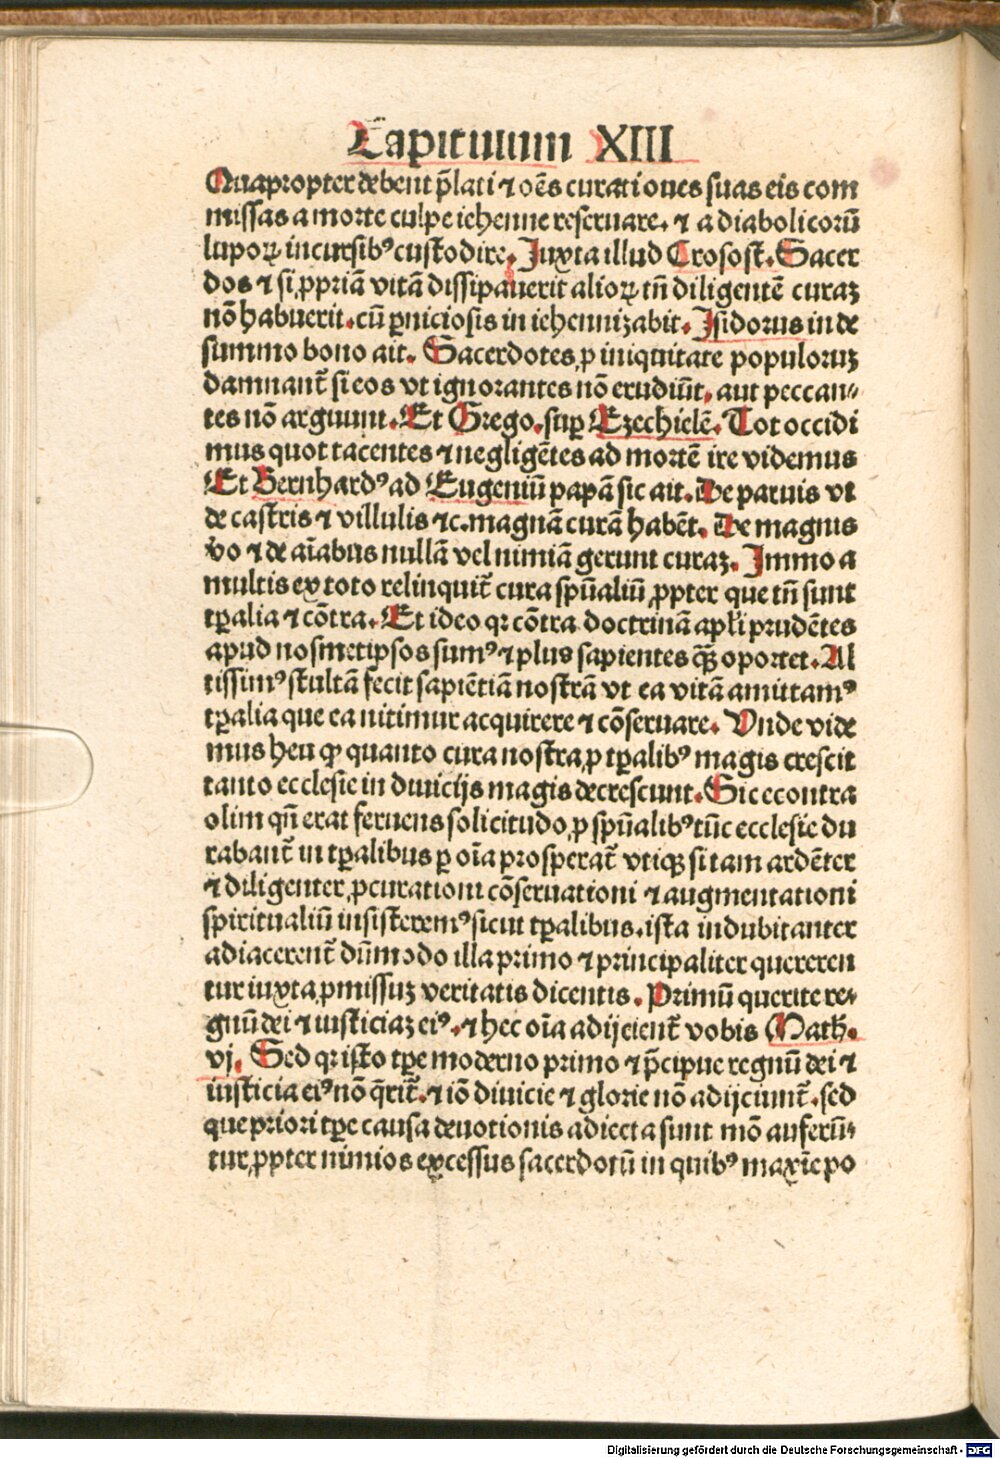 Capitulum XIII
Quapropter debent p̄lati ⁊ oēs curati oues suas eis com
missas a morte culpe iehenne reseruare. ⁊ a diabolicorū
lupoꝝ incursibꝰ custodire. Juxta illud Crosost. Sacer
dos ⁊ si ꝓpriā vitā dissipauerit alioꝝ tn̄ diligentē curaꝫ
nō habuerit. cū ꝑniciosis in iehennizabit. Jsidorus in de
summo bono ait. Sacerdotes ꝓ iniquitate populoruꝫ
damnant̄ si eos vt ignorantes nō erudiūt. aut peccan⸗
tes nō arguunt. Et Grego. suꝑ Ezechielē. Tot occidi
mus quot tacentes ⁊ negligētes ad mortē ire videmus
Et Bernhardꝰ ad Eugeniū papā sic ait. De paruis vt
de castris ⁊ villulis ⁊c. magnā curā habēt. De magnis
vo ⁊ de aīabus nullā vel nimiā gerunt curaꝫ. Jmmo a
multis ex toto relinquit̄ cura spūaliū ꝓpter que tn̄ sunt
tꝑalia ⁊ cōtra. Et ideo qꝛ cōtra doctrinā apl̄i prudētes
apud nosmetipsos sumꝰ ⁊ plus sapientes qꝫ̄ oportet. Al
tissimꝰ stultā fecit sapiētiā nostrā vt ea vitā amittamꝰ
tꝑalia que ea nitimur acquirere ⁊ cōseruare. Vnde vide
mus heu ꝙ quanto cura nostra ꝓ tꝑalibꝰ magis crescit
tanto ecclesie in diuicijs magis decrescunt. Sic econtra
olim qn̄ erat feruens solicitudo ꝓ spūalibꝰ tūc ecclesie du
rabant̄ in tꝑalibus ꝑ oīa prosperat̄ vtiqꝫ si tam ardēter
⁊ diligenter ꝓcurationi cōseruationi ⁊ augmentationi
spiritualiū insisteremꝰ sicut tꝑalibus. ista indubitanter
adiacerent̄ dūmodo illa primo ⁊ principaliter quereren
tur iuxta ꝓmissuꝫ veritatis dicentis. Primū querite re⸗
gnū dei ⁊ iusticiaꝫ eiꝰ. ⁊ hec oīa adijcient̄ vobis Math.
vj. Sed qꝛ isto tꝑe moderno primo ⁊ p̄cipue regnū dei ⁊
iusticia eiꝰ nō q̄rit̄. ⁊ iō diuicie ⁊ glorie nō adijciunt̄. sed
que priori tꝑe causa deuotionis adiecta sunt mō auferū⸗
tur ꝓpter nimios excessus sacerdotū in quibꝰ maxīe po
Digitalisierung gefördert durch die Deutsche Forschungsgemeinschaft - DFG